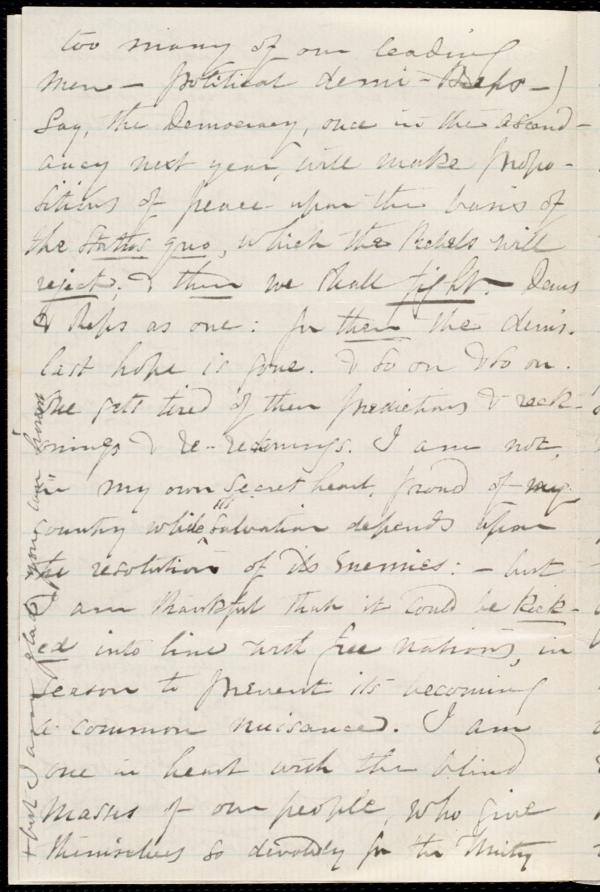 too many of our leading
men – political demi-Reps –)
Say, the Democracy, once in the ascend-
ancy next year, will make propo-
sitions of peace upon the basis of
the status quo, which the Rebels will
reject; & then we shall fight. Dems
& Reps as one: for then the dem's.
last hope is gone. & so on & so on.
One gets tired of these predictions & reck-
onings & re-reckonings. I am not,
in my own secret heart, proud of my
country while its salvation depends upon
the resolution of its Enemies: – but
I am thankful that it could be kick-
ed into line with free nations, in
season to prevent its becoming
a common nuisance. I am
one in heart with the blind
masses of our people, who give
themselves so devotedly for the Unity
+ but I am glad you can